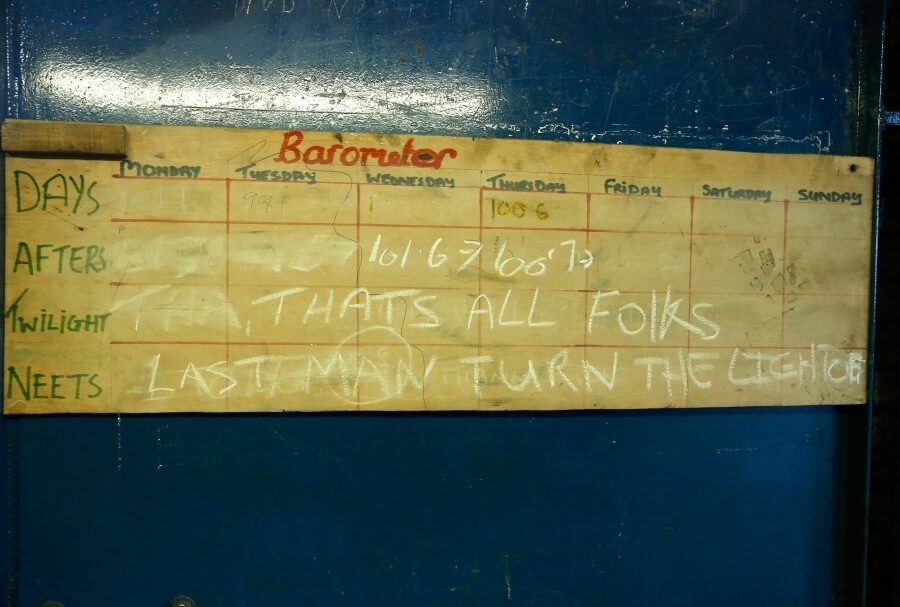 Barometer
MONDAY TUESDAY WEDNESDAY THURSDAY FRIDAY SATURDAY SUNDAY
DAYS 100 6
AFTERS 101.6→ 100.7→
TWILIGHT THATS ALL FOLKS
NEETS LAST MAN TURN THE LIGHT OF